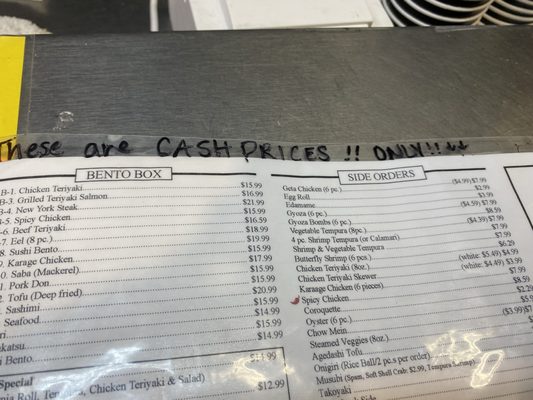 These are CASH PRICES !! ONLY!!
BENTO BOX
B-1. Chicken Teriyaki $15.99
B-3. Grilled Teriyaki Salmon $16.99
B-4. New York Steak $21.99
B-5. Spicy Chicken $15.99
-6. Beef Teriyaki $16.99
-7. Eel (8 pc.) $18.99
8. Sushi Bento $19.99
9. Karage Chicken $15.99
0. Saba (Mackerel) $17.99
1. Pork Don $15.99
2. Tofu (Deep fried) $15.99
. Sashimi $20.99
. Seafood $15.99
ri $14.99
katsu $15.99
i Bento $14.99
Special $14.99
nia Roll, Tempura, Chicken Teriyaki & Salad)
$12.99
SIDE ORDERS
Geta Chicken (6 pc.) ($4.99) $7.99
Egg Roll $2.99
Edamame $3.99
Gyoza (6 pc.) ($4.59) $7.99
Gyoza Bombs (6 pc.) $8.59
Vegetable Tempura (8pc.) ($4.39) $7.99
4 pc. Shrimp Tempura (or Calamari) $7.99
Shrimp & Vegetable Tempura $7.99
Butterfly Shrimp (6 pcs.) $6.29
Chicken Teriyaki (8oz.) (white: $5.49) $4.99
Chicken Teriyaki Skewer (white: $4.49) $3.99
Karaage Chicken (6 pieces) $7.99
Spicy Chicken $8.59
Coroquette $2.29
Oyster (6 pc.)
Chow Mein
Steamed Veggies (8oz.)
Agedashi Tofu
Onigiri (Rice Ball/2 pcs per order)
Musubi (Spam, Soft Shell Crab: $2.99, Tempura Shrimp)
Takoyaki